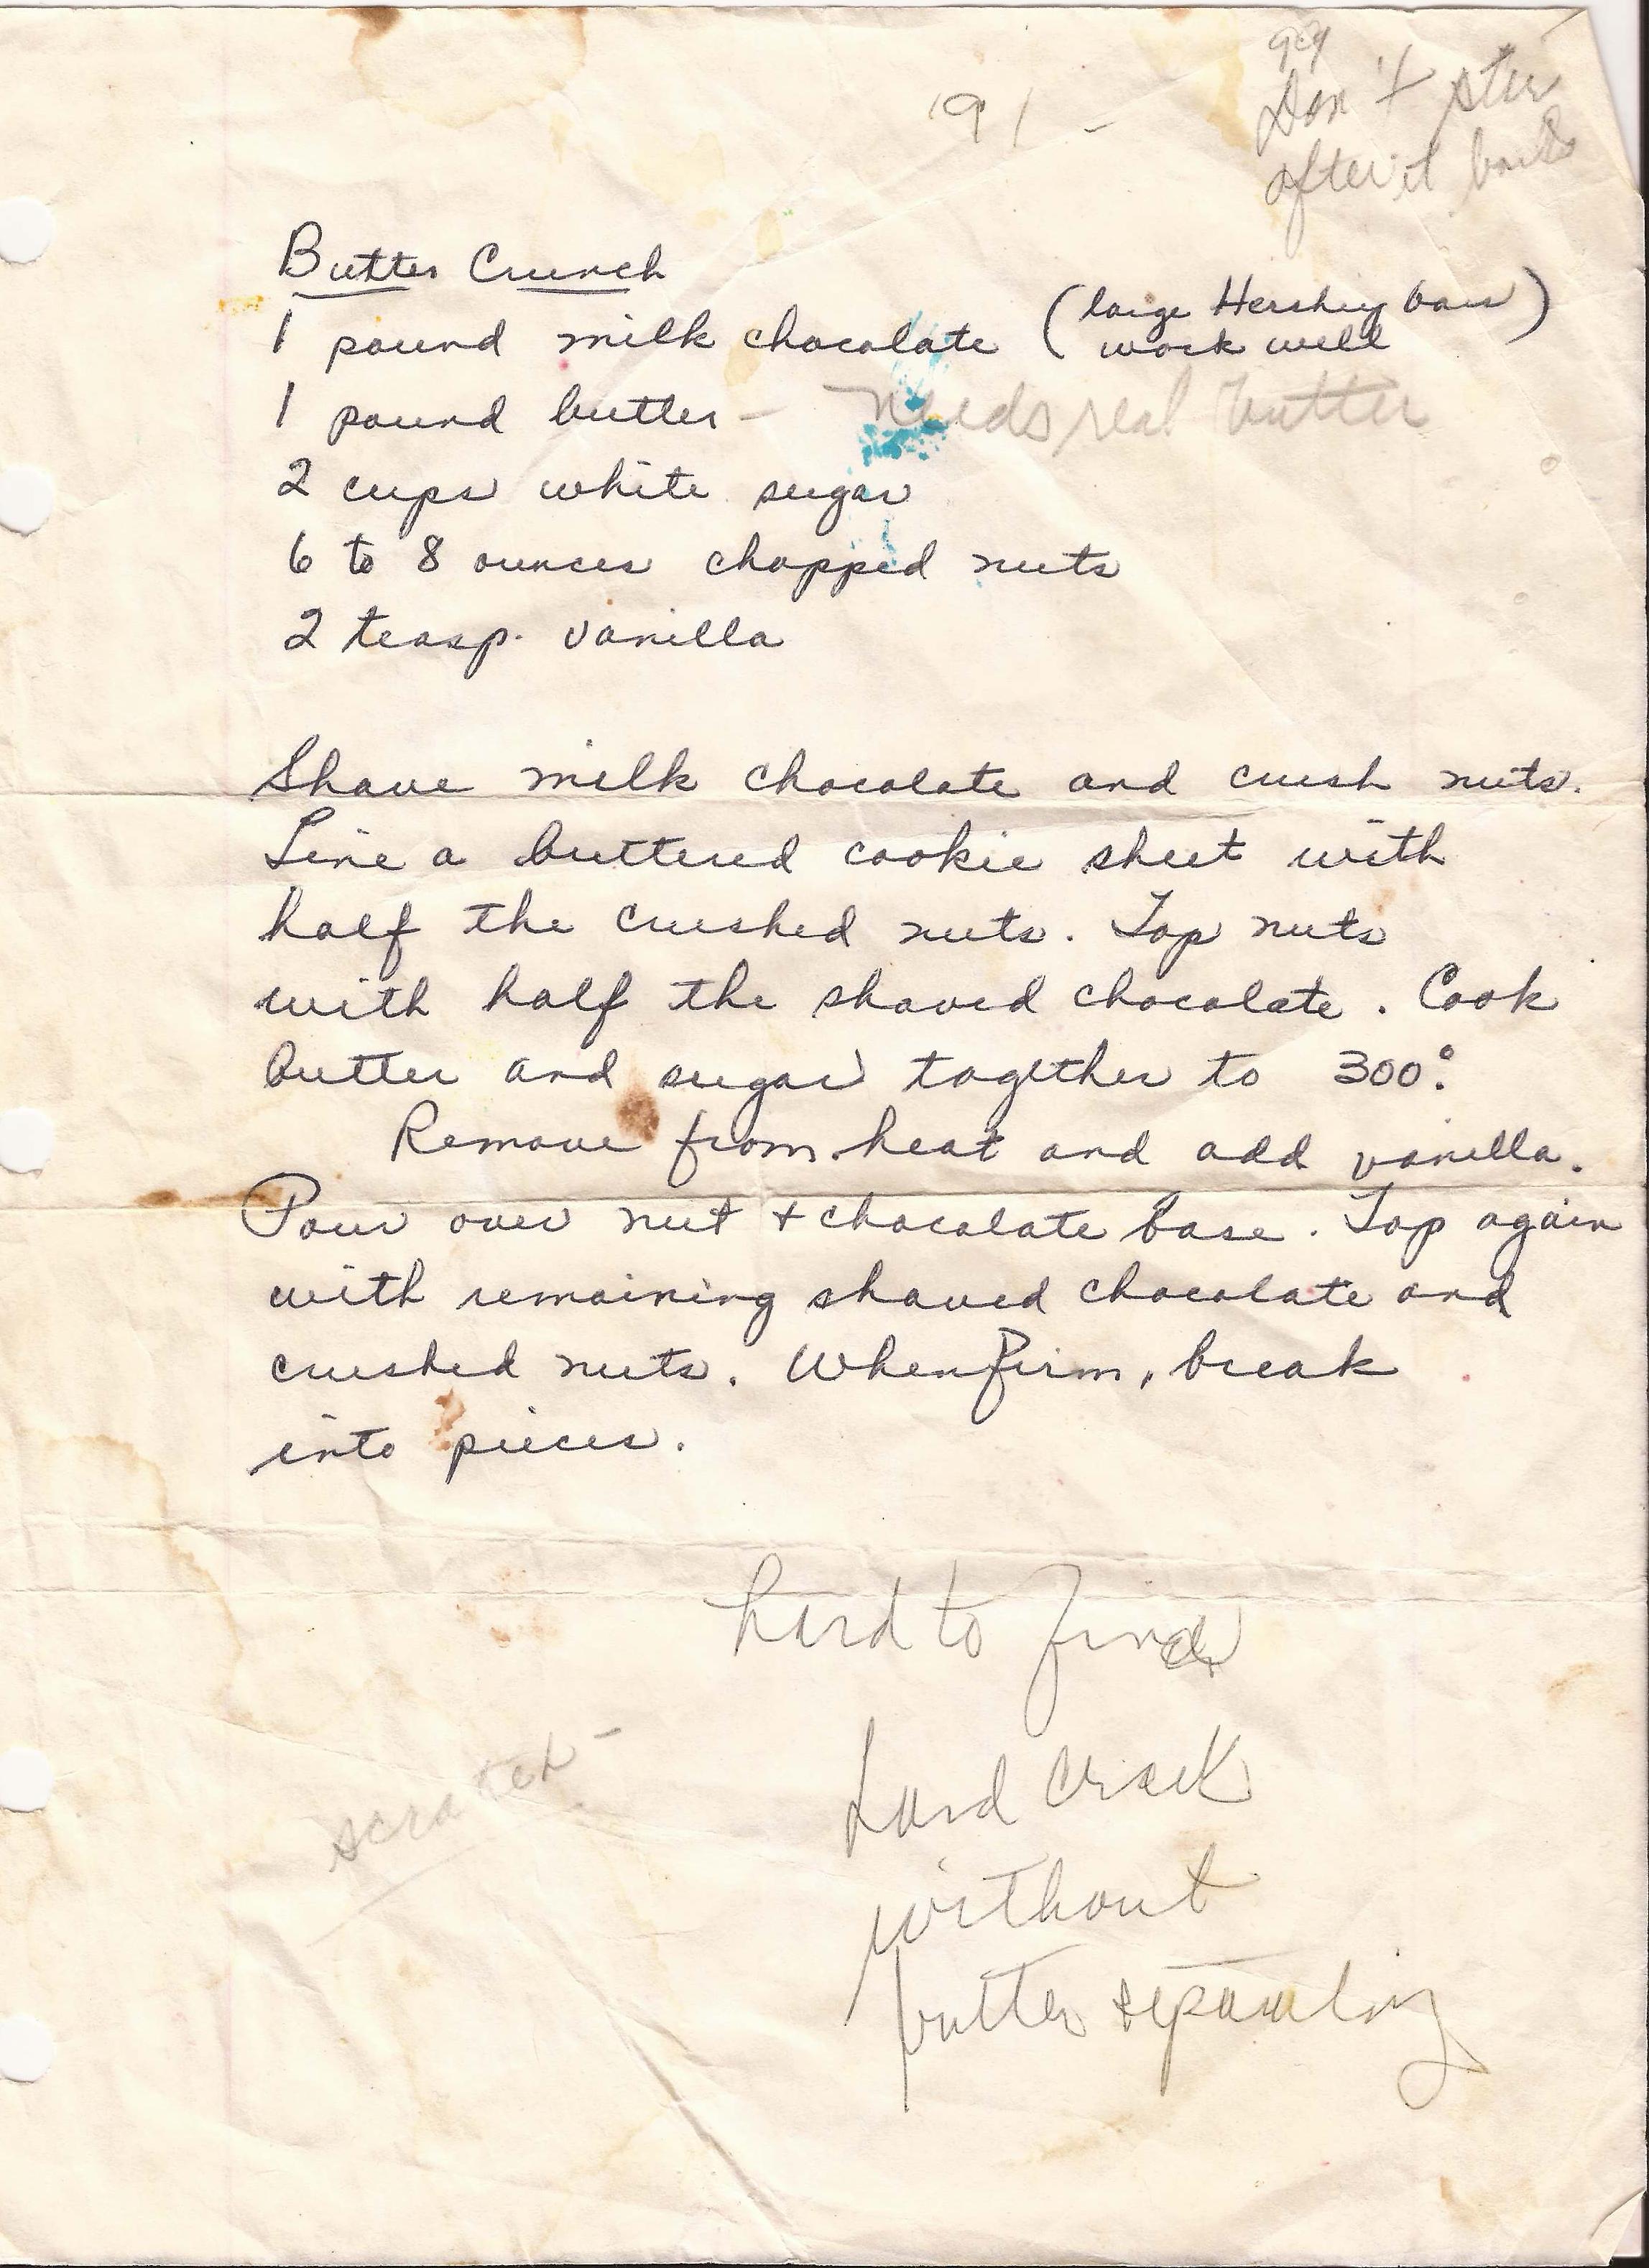 '91 -
Don't stir
after it boils
Butter Crunch
1 pound milk chocolate (large Hershey bars
work well)
1 pound butter - needs real butter
2 cups white sugar
6 to 8 ounces chopped nuts
2 teasp. vanilla
Shave milk chocolate and crush nuts.
Line a buttered cookie sheet with
half the crushed nuts. Top nuts
with half the shaved chocolate. Cook
butter and sugar together to 300°.
Remove from heat and add vanilla.
Pour over nut + chocolate base. Top again
with remaining shaved chocolate and
crushed nuts. When firm, break
into pieces.
hard to find
hard crack
without
butter separating
scratch -